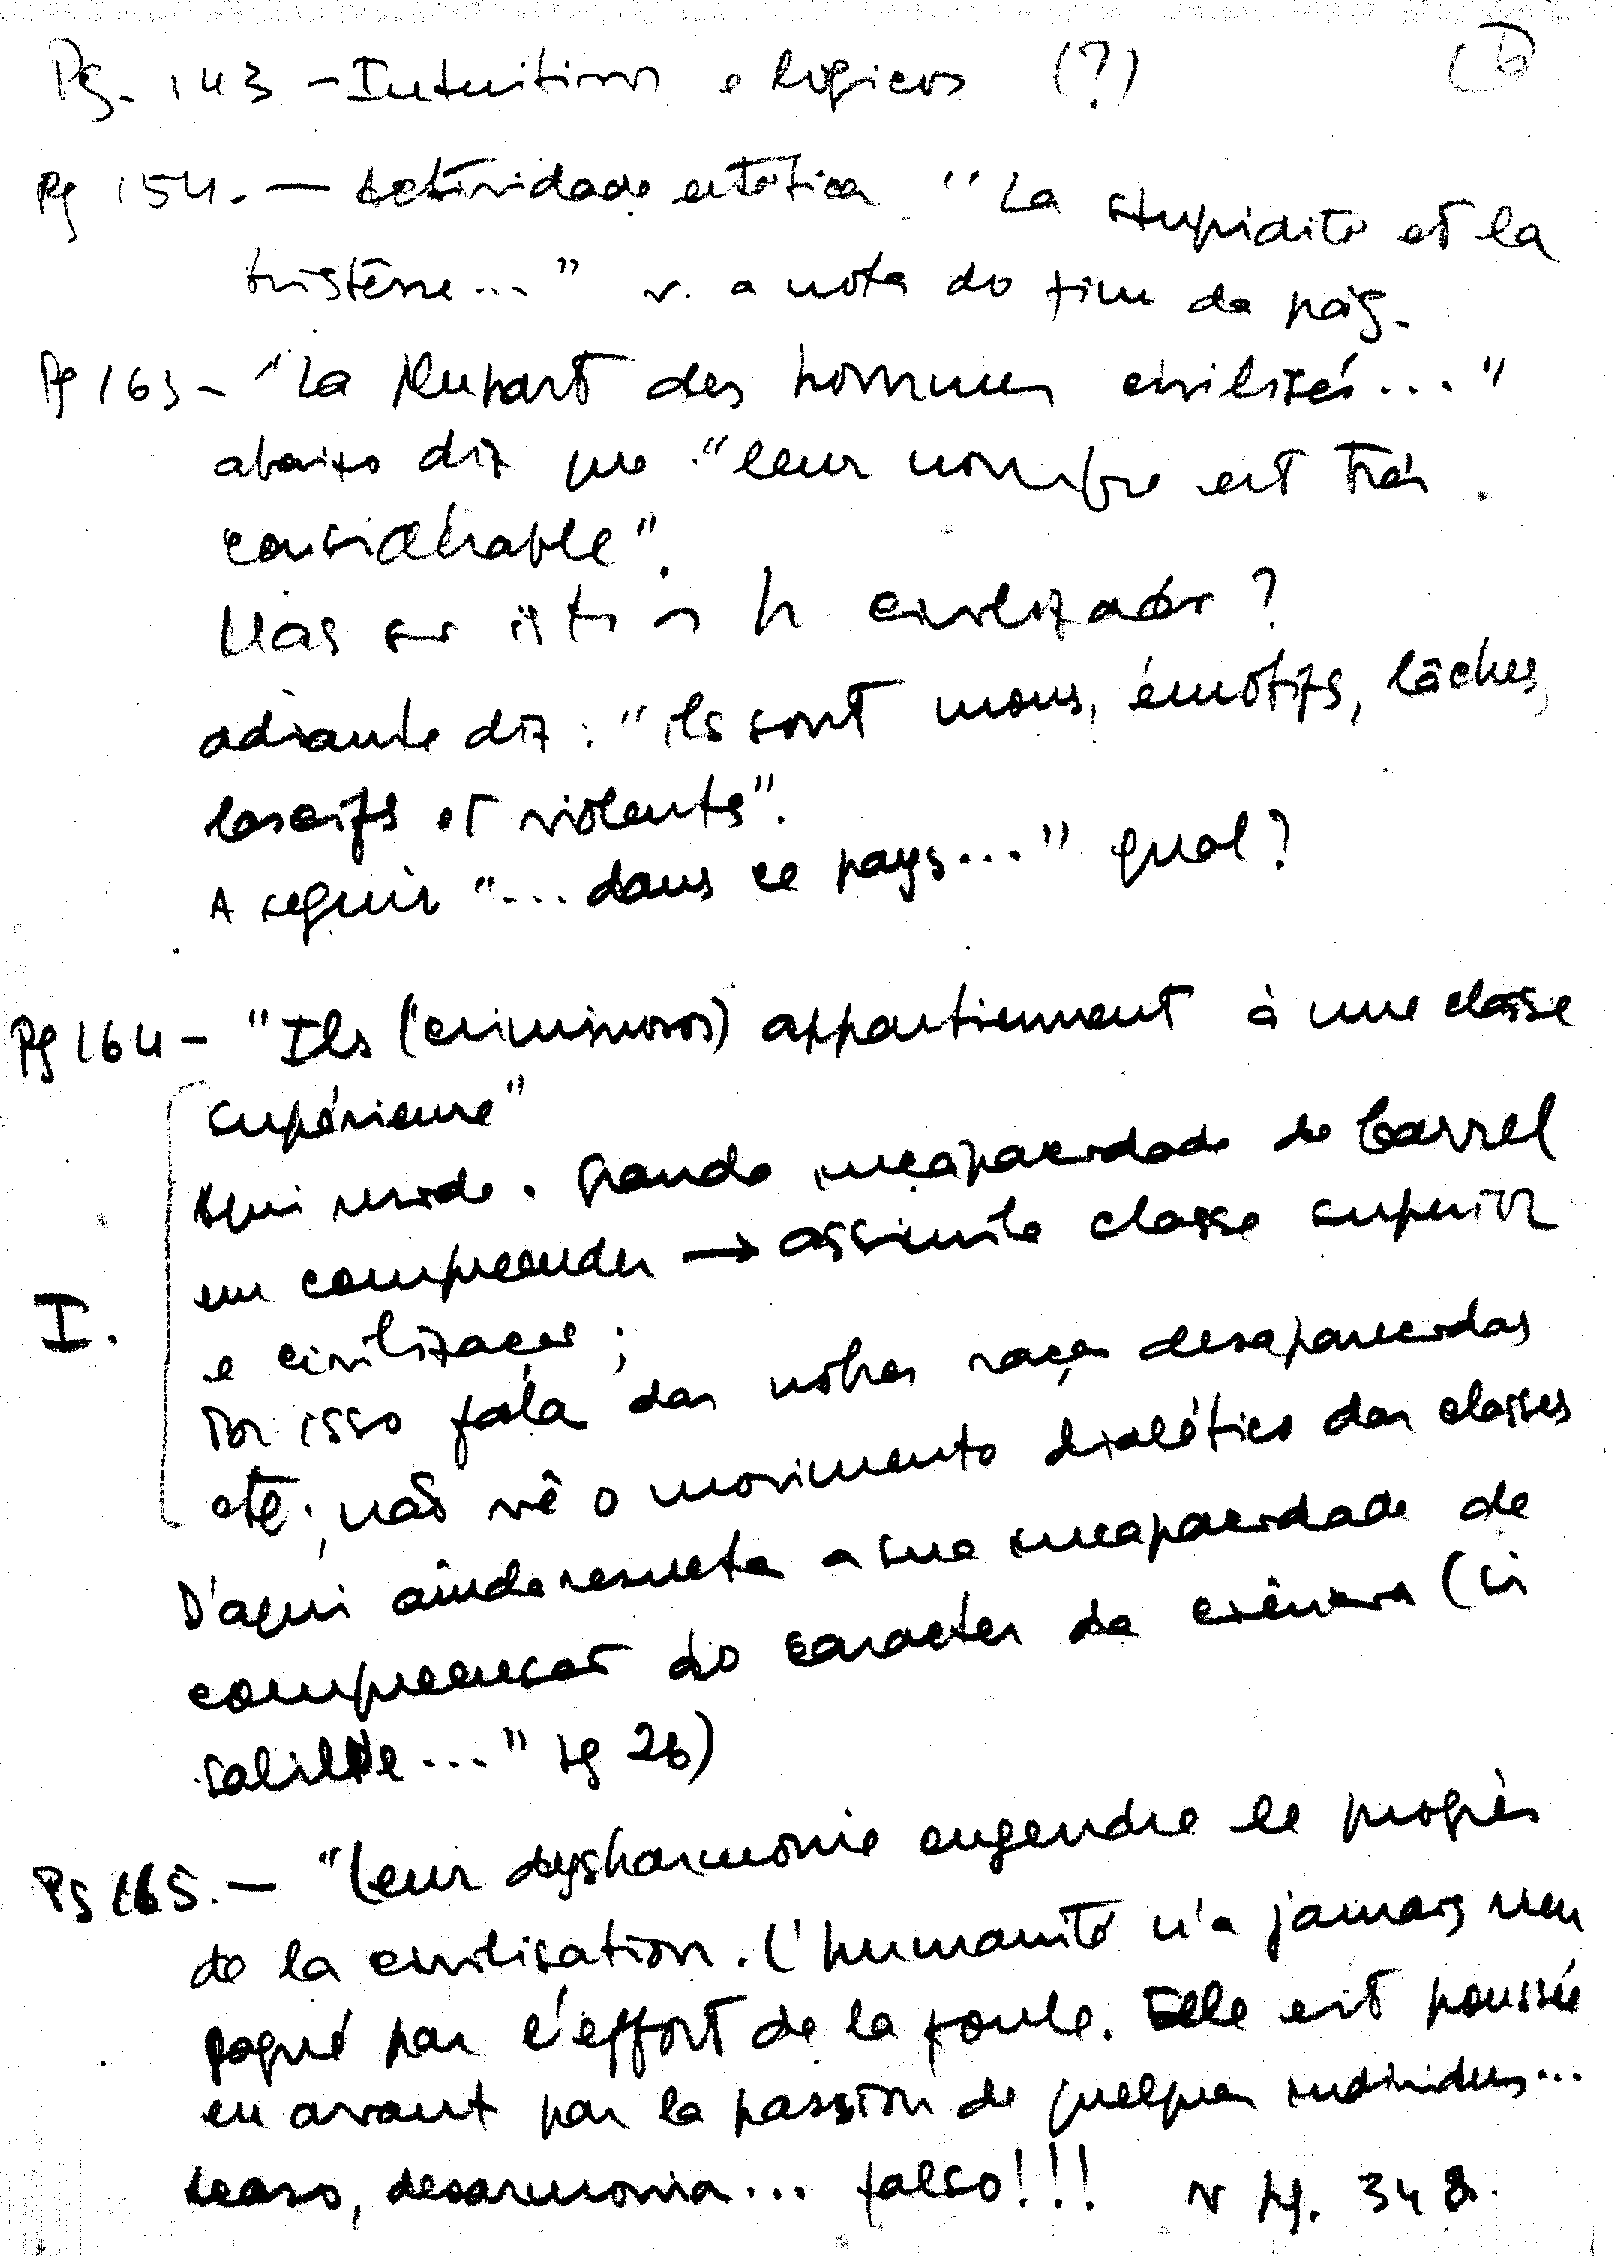 Pg. 143 - Intuitivos e logicos (?) (b
Pg 154. — Actividade estética "La stupidité et la
tristesse..." v. a nota do fim da pág.
Pg 163 - "La plupart des hommes civilisés..."
abaixo diz que "leur nombre est très
considérable".
Mas ser isto é h civilizados?
adiante diz: "ils sont mous, émotifs, lâches,
lascifs et violents".
A seguir "...dans ce pays..." qual?
Pg 164 - "Ils (criminosos) appartiennent à une classe
supérieure"
Aqui reside a grande incapacidade do Carrel
em compreender → assimila classe superior
I. e civilização;
Por isso fala das nobres raças desaparecidas
etc; não vê o movimento dialético das classes
D'aqui ainda resulta a sua incapacidade de
compreensão do caracter da ciência (si
Galilée..." pg 26)
Pg 165. — "Leur dysharmonie engendre le progrès
de la civilisation. L'humanité n'a jamais rien
gagné par l'effort de la foule. Elle est poussée
en avant par la passion de quelques individus...
acaso, desarmonia... falso!!! v pg. 348.